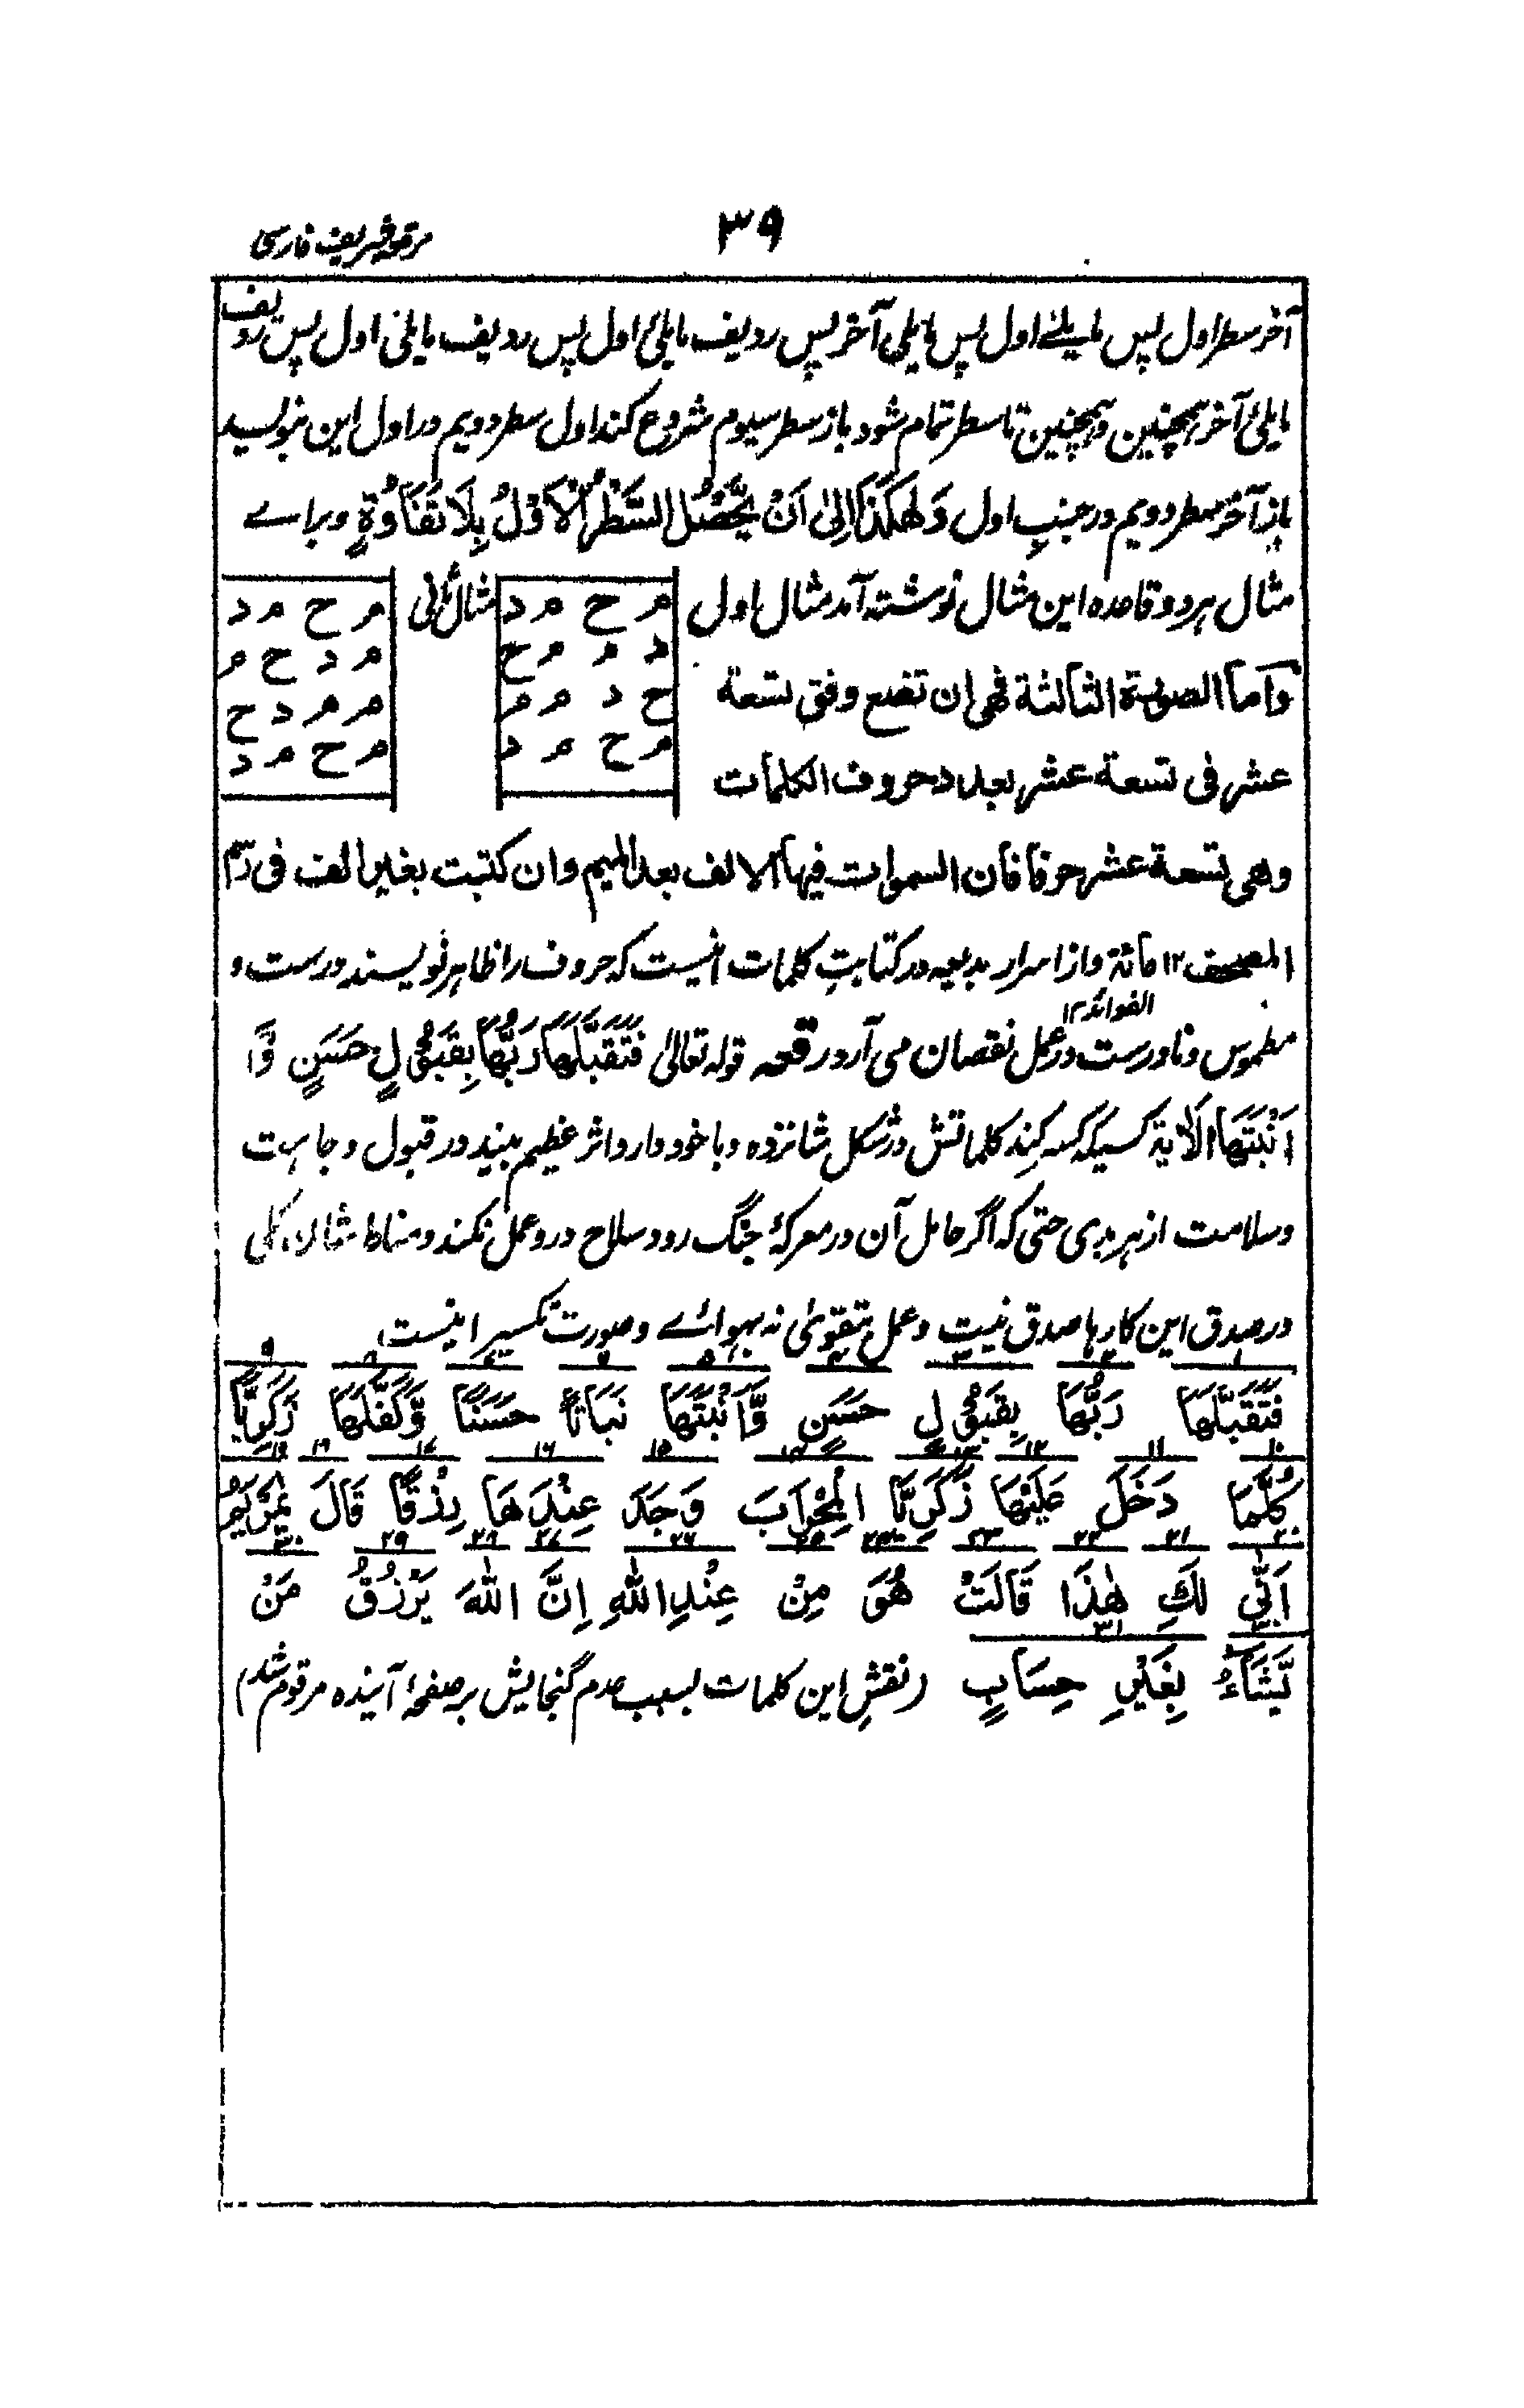 ۳۹
مرقعہ شریف فارسی
آخر سطر اول پس مایلی اول پس مایلی آخر پس ردیف مایلی اول پس ردیف مایلی اول پس ردیف
مایلی آخر ہمچنین وہمچنین تا سطر تمام شود باز سطر سیوم شروع کند اول سطر دویم در اول این بنویسد
باز آخر سطر دویم در جنب اول وَهٰكَذَا اِلىٰ اَنْ يَّحْصُلَ السَّطْرُ الْاَوَّلُ بِلَا تَفَاوُةٍ و براے
مثال ہر دو قاعدہ این مثال نوشتہ آمد مثال اول
م ح م د
د م م ح
ح د م م
م ح م د
مثال ثانی
م ح م د
م د ح م
م م د ح
م ح م د
واما الصورة الثالثة فهی ان تضع وفق تسعة
عشر فی تسعة عشر بعدد حروف الکلمات
وهی تسعة عشر حرفا فان السموات فیها الالف بعد المیم وان کتبت بغیر الف فی رسم
المصحف ۱۲ مائة واز اسرار بدیعہ در کتابت کلمات آنیست کہ حروف را ظاہر نویسند درست و
الفوائد ۱۲
مطموس ونا درست در عمل نقصان می آرد رقعہ قولہ تعالیٰ فَتَقَبَّلَهَا رَبُّهَا بِقَبُوْلٍ حَسَنٍ وَّ
اَنْبَتَهَا الْاٰیة کسیکہ کسر کند کلماتش در شکل شانزدہ و با خود دارد اثر عظیم بیند در قبول و جاہت
و سلامت از ہر بدی حتی کہ اگر حامل آن در معرکۂ جنگ رود سلاح درو عمل نکند ومناط شان کلی
در صدق این کارہا صدق نیت و عمل بتقویٰ نہ بہوائے وصورت تکسیر اینست
۱ ۲ ۳ ۴ ۵ ۶ ۷ ۸ ۹
فَتَقَبَّلَهَا رَبُّهَا بِقَبُوْلٍ حَسَنٍ وَّاَنْبَتَهَا نَبَاتًا حَسَنًا وَّكَفَّلَهَا زَكَرِيَّا
۱۰ ۱۱ ۱۲ ۱۳ ۱۴ ۱۵ ۱۶ ۱۷ ۱۸ ۱۹
كُلَّمَا دَخَلَ عَلَيْهَا زَكَرِيَّا الْمِحْرَابَ وَجَدَ عِنْدَهَا رِزْقًا قَالَ يٰمَرْيَمُ
۲۰ ۲۱ ۲۲ ۲۳ ۲۴ ۲۵ ۲۶ ۲۷ ۲۸ ۲۹ ۳۰
اَنّٰى لَكِ هٰذَا قَالَتْ هُوَ مِنْ عِنْدِ اللّٰهِ اِنَّ اللّٰهَ يَرْزُقُ مَنْ
۳۱
يَّشَآءُ بِغَيْرِ حِسَابٍ (نقش این کلمات بسبب عدم گنجایش بر صفحۂ آئندہ مرقوم شد)